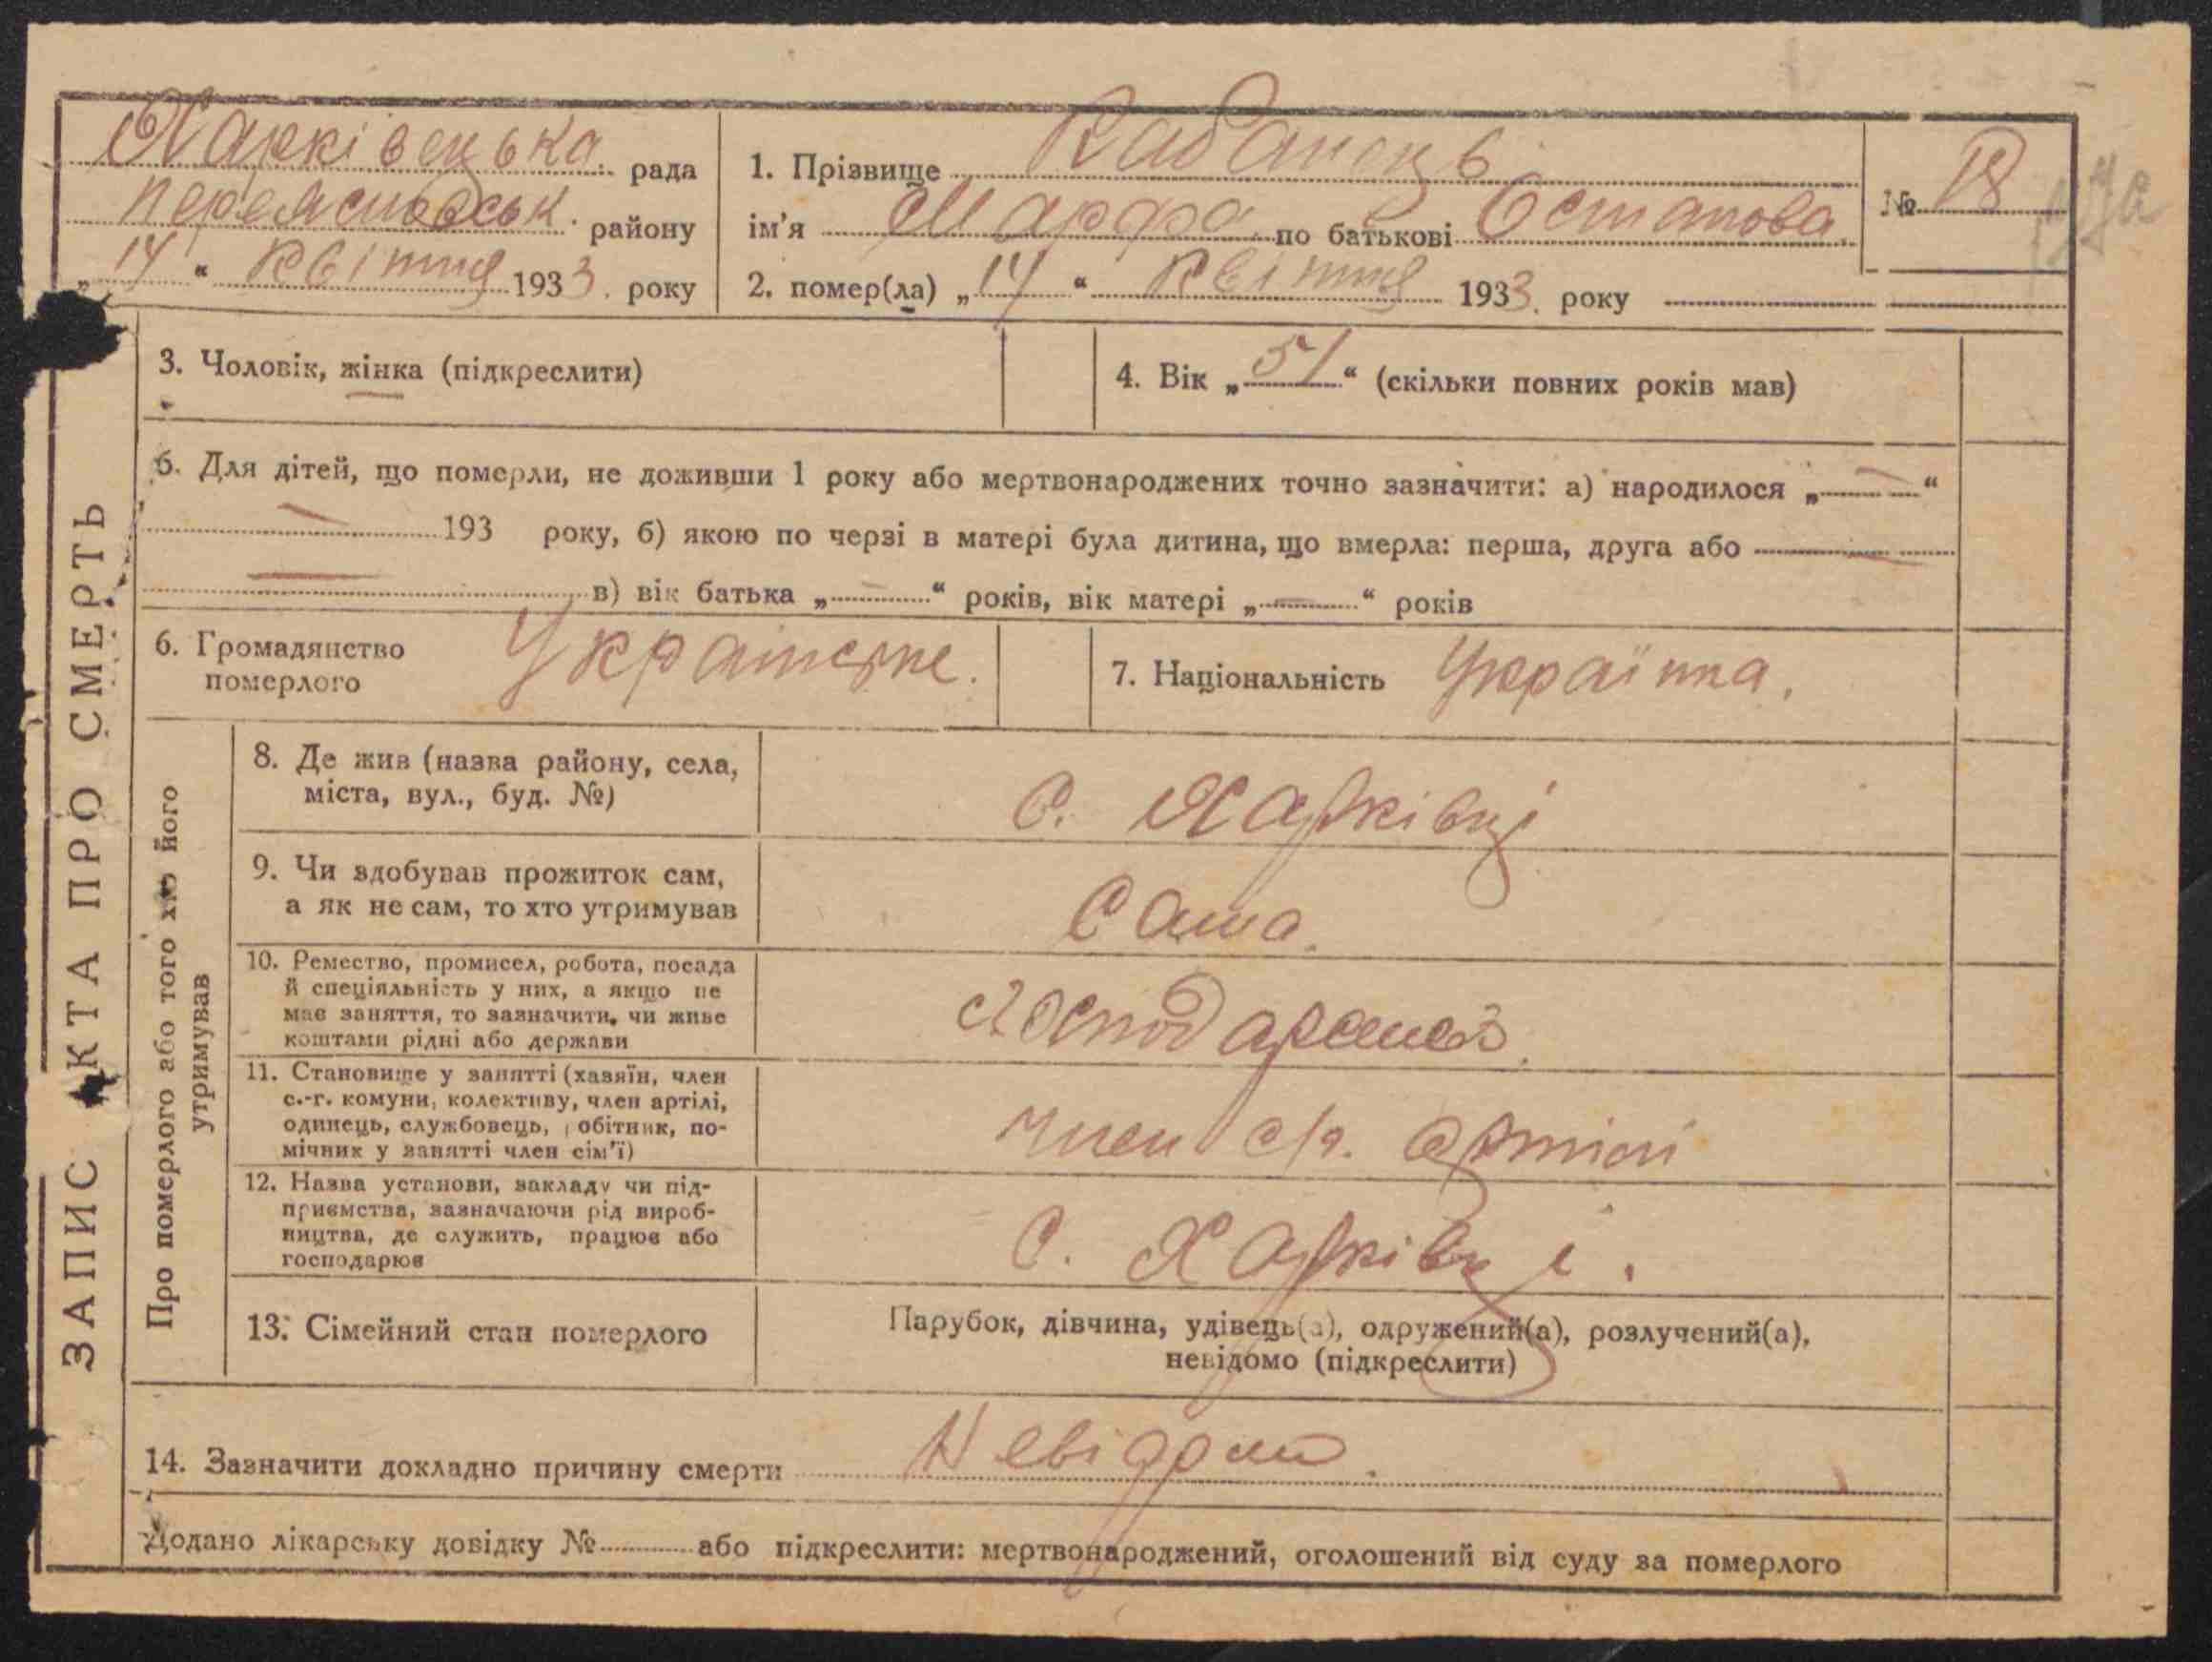 Харківецька рада
Переяславськ. району
„14“ квітня 1933. року
1. Прізвище Кабанець
ім'я Марфа по батькові Остапова
2. помер(ла) „14“ квітня 1933. року
№ 18
3. Чоловік, жінка (підкреслити)
4. Вік „51“ (скільки повних років мав)
5. Для дітей, що померли, не доживши 1 року або мертвонароджених точно зазначити: а) народилося „—“
— 193 року, б) якою по черзі в матері була дитина, що вмерла: перша, друга або —
— в) вік батька „—“ років, вік матері „—“ років
6. Громадянство
померлого
Українське.
7. Національність Українка.
ЗАПИС АКТА ПРО СМЕРТЬ
Про померлого або того хто його
утримував
8. Де жив (назва району, села,
міста, вул., буд. №)
С. Харківці
9. Чи здобував прожиток сам,
а як не сам, то хто утримував
Сама.
10. Ремество, промисел, робота, посада
й спеціяльність у них, а якщо не
має заняття, то зазначити, чи живе
коштами рідні або держави
11. Становище у занятті (хазяїн, член
с.-г. комуни, колективу, член артілі,
одинець, службовець, робітник, по-
мічник у занятті член сім'ї)
член с/г. артілі
12. Назва установи, закладу чи під-
приємства, зазначаючи рід вироб-
ництва, де служить, працює або
господарює
С. Харківці.
13. Сімейний стан померлого
Парубок, дівчина, удівець(а), одружений(а), розлучений(а),
невідомо (підкреслити)
14. Зазначити докладно причину смерти Невідома.
Додано лікарську довідку № або підкреслити: мертвонароджений, оголошений від суду за померлого